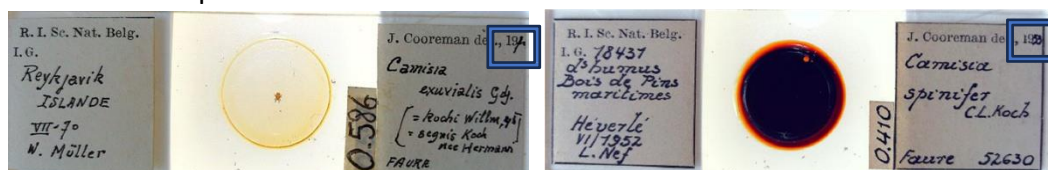 R. I. Sc. Nat. Belg.
I.G.
Reykjavik
ISLANDE
VII-70
W. Müller
0.586
J. Cooreman det., 19
Camisia
exuvialis Gdj.
[= Kochi Willm,
= segnis Koch
nec Hermann
FAURE
R. I. Sc. Nat. Belg.
I. G. 18437
ds humus
Bois de Pins
maritimes
Héverlé
VI/1952
L. Nef
0.410
J. Cooreman de , 1953
Camisia
spinifer
C.L. Koch
Faure 52630